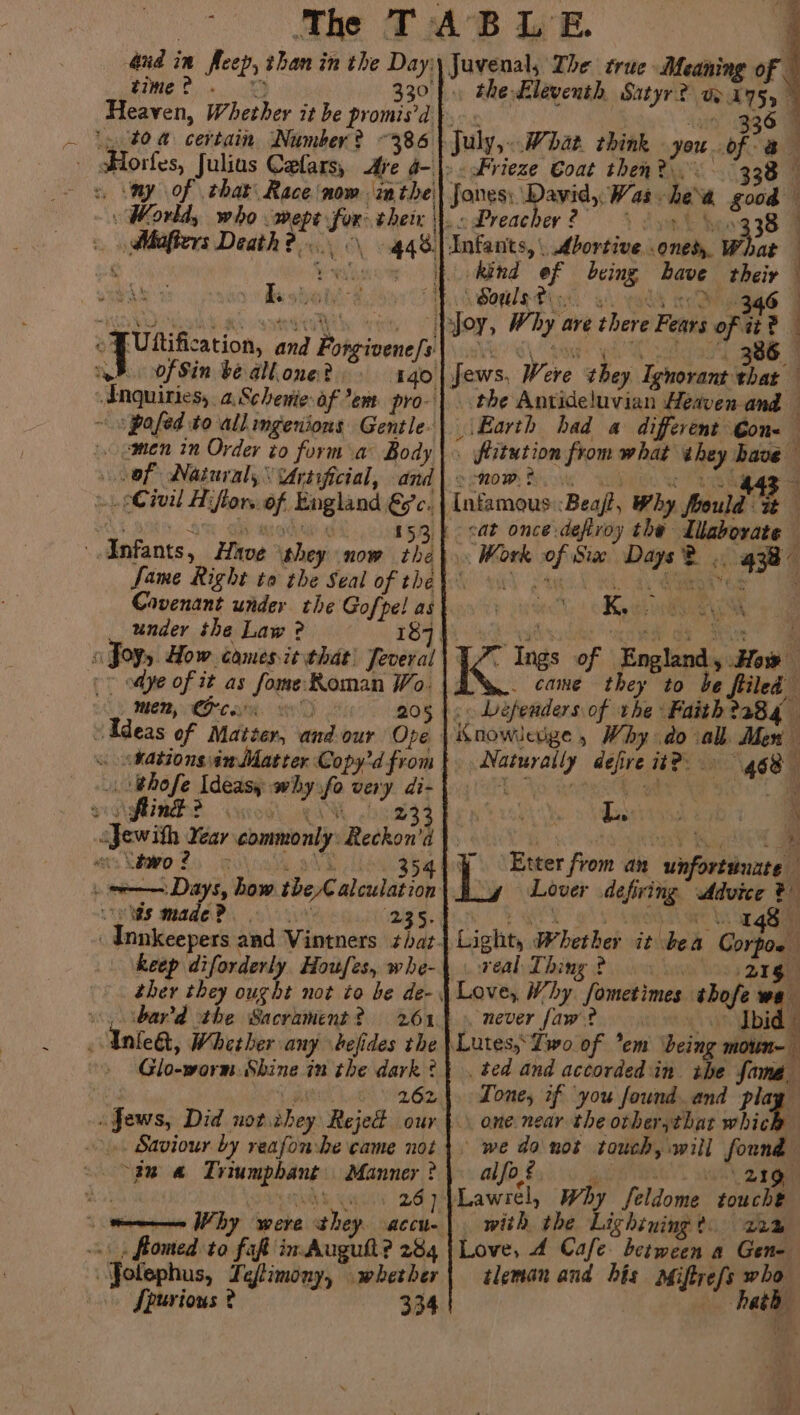 The TABLE.
and in ſleep, than in the Day-
time? 330
Heaven, Whether it be promis'd
to a certain Number? 386
Horſes, Julius Cæſars, Are a-
ny of that Race now in the
World, who wept for their
Maſters Death? 448
I.
JUſtification, and Forgiveneſs
of Sin be all one? 140
Inquiries, a Scheme of 'em pro-
poſed to all ingenious Gentle-
men in Order to form a Body
of Natural, Artificial, and
Civil Hiſtor. of England &c.
153
Infants, Have they now the
ſame Right to the Seal of the
Covenant under the Goſpel as
under the Law? 187
Joy, How comes it that ſeveral
dye of it as ſome Roman Wo-
men, &c. 205
Ideas of Matter, and our Ope-
rations in Matter Copy'd from
thoſe Ideas, why ſo very di-
ſtinct? 233
Jewiſh Year commonly Reckon'd
two? 354
—— Days, how the Calculation
is made? 235.
Innkeepers and Vintners that
keep diſorderly Houſes, whe-
ther they ought not to be de-
bar'd the Sacrament? 261
Inſect, Whether any beſides the
Glo-worm Shine in the dark?
262
Jews, Did not they Reject our
Saviour by reaſon he came not
in a Triumphant Manner?
267
—— Why were they accu-
ſtomed to faſt in Auguſt? 284
Joſephus, Teſtimony, whether
ſpurious? 334
Juvenal, The true Meaning of
the Eleventh Satyr? v. 175,
336
July, What think you of a
Frieze Coat then? 338
Jones, David, Was he a good
Preacher? 338
Infants, Abortive ones, What
kind of being have their
Souls? 346
Joy, Why are there Fears of it?
386
Jews, Were they Ignorant that
the Antideluvian Heaven and
Earth had a different Con-
ſtitution from what they have
now? 443
Infamous Beaſt, Why ſhould it
at once deſtroy the Elaborate
Work of Six Days? 438
K.
KIngs of England, How
came they to be ſtiled
Defenders of the Faith? 284
Knowledge, Why do all Men
Naturally deſire it? 468
L.
LEtter from an unfortunate
Lover deſiring Advice?
148
Light, Whether it be a Corpo-
real Thing? 215
Love, Why ſometimes thoſe we
never ſaw? Ibid
Lutes, Two of 'em being moun-
ted and accorded in the ſame
Tone, if you found and play
one near the other, that which
we do not touch, will ſound
alſo? 219
Lawrel, Why ſeldome toucht
with the Lightning? 222
Love, A Caſe between a Gen-
tleman and his Miſtreſs who
hath